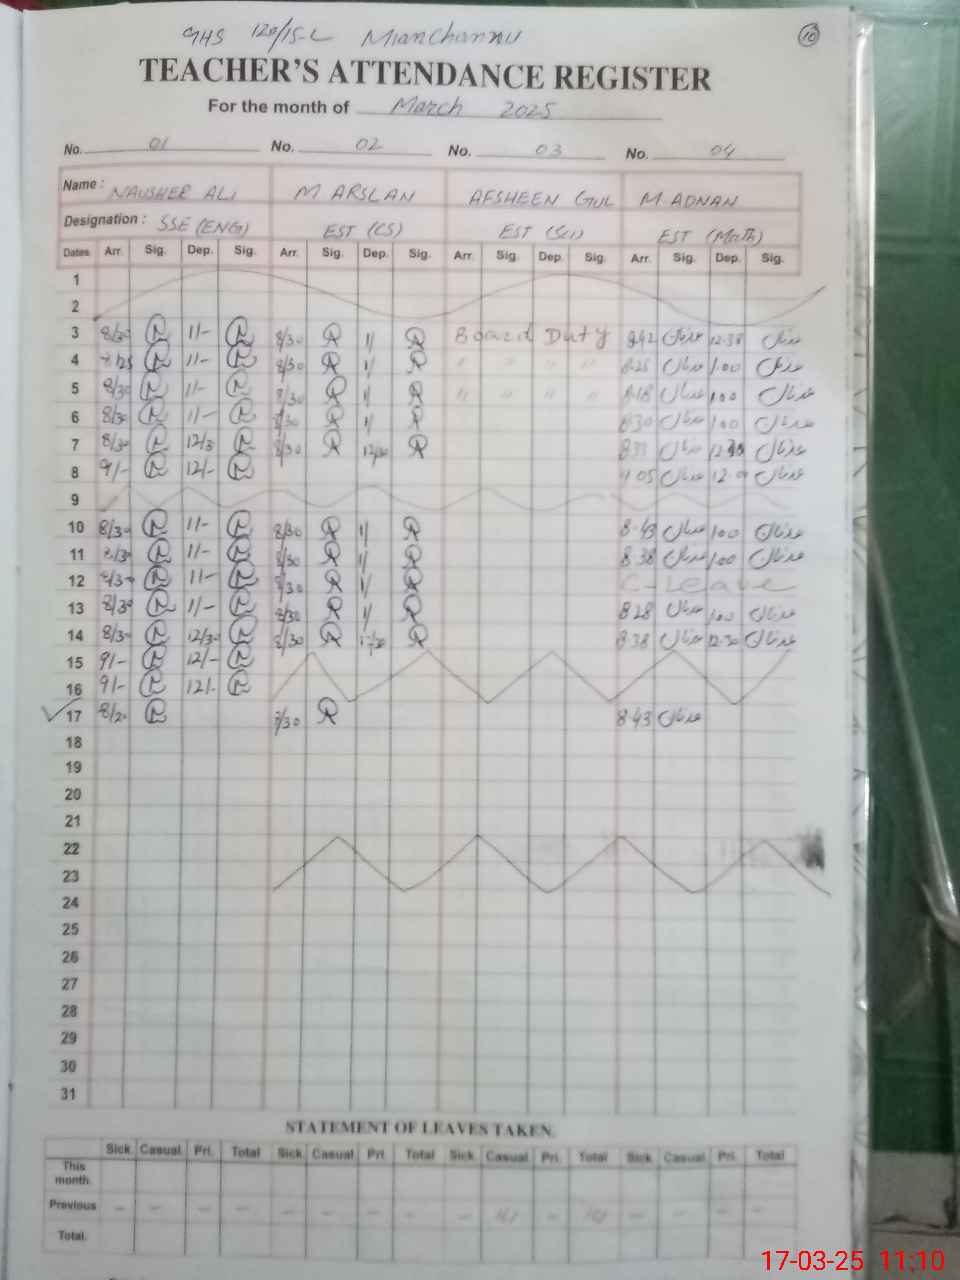 GHS 120/15-L Mianchannu
10
TEACHER'S ATTENDANCE REGISTER
For the month of March 2025
No. 01 No. 02 No. 03 No. 04
Name : NAUSHER ALI M ARSLAN AFSHEEN GUL M ADNAN
Designation : SSE (ENG) EST (CS) EST (Sci) EST (Math)
Dates Arr. Sig. Dep. Sig. Arr. Sig. Dep. Sig. Arr. Sig. Dep. Sig. Arr. Sig. Dep. Sig.
1
2
3 8/30 11/- 8/30 R 11 R Board Duty 8 42 عدنان 12.38 عدنان
4 8/25 11/- 8/30 R 11 R " " " " 8 25 عدنان 1.00 عدنان
5 8/30 11/- 8/30 R 11 R " " " " 8 18 عدنان 1 00 عدنان
6 8/30 11/- 8/30 R 11 R 8 30 عدنان 1 00 عدنان
7 8/30 12/3 8/30 R 12/30 R عدنان عدنان
8 9/- 12/- 9 05 عدنان عدنان
9
10 8/30 11/- 8/30 R 11 R 8.43 عدنان 1 00 عدنان
11 8/30 11/- 8/30 R 11 R 8 38 عدنان 1 00 عدنان
12 8/30 11/- 8/30 R 11 R C-Leave
13 8/30 11/- 8/30 R 11 R 8 28 عدنان 1 00 عدنان
14 8/30 12/30 8/30 R R 8 38 عدنان 12.30 عدنان
15 9/- 12/-
16 9/- 12/-
17 8/20 R 8.43 عدنان
18
19
20
21
22
23
24
25
26
27
28
29
30
31
STATEMENT OF LEAVES TAKEN.
Sick. Casual. Pri. Total Sick. Casual. Pri. Total Sick. Casual. Pri. Total Sick. Casual. Pri. Total
This month.
Previous - - - - - - - - - - - - - -
Total.
17-03-25 11:10